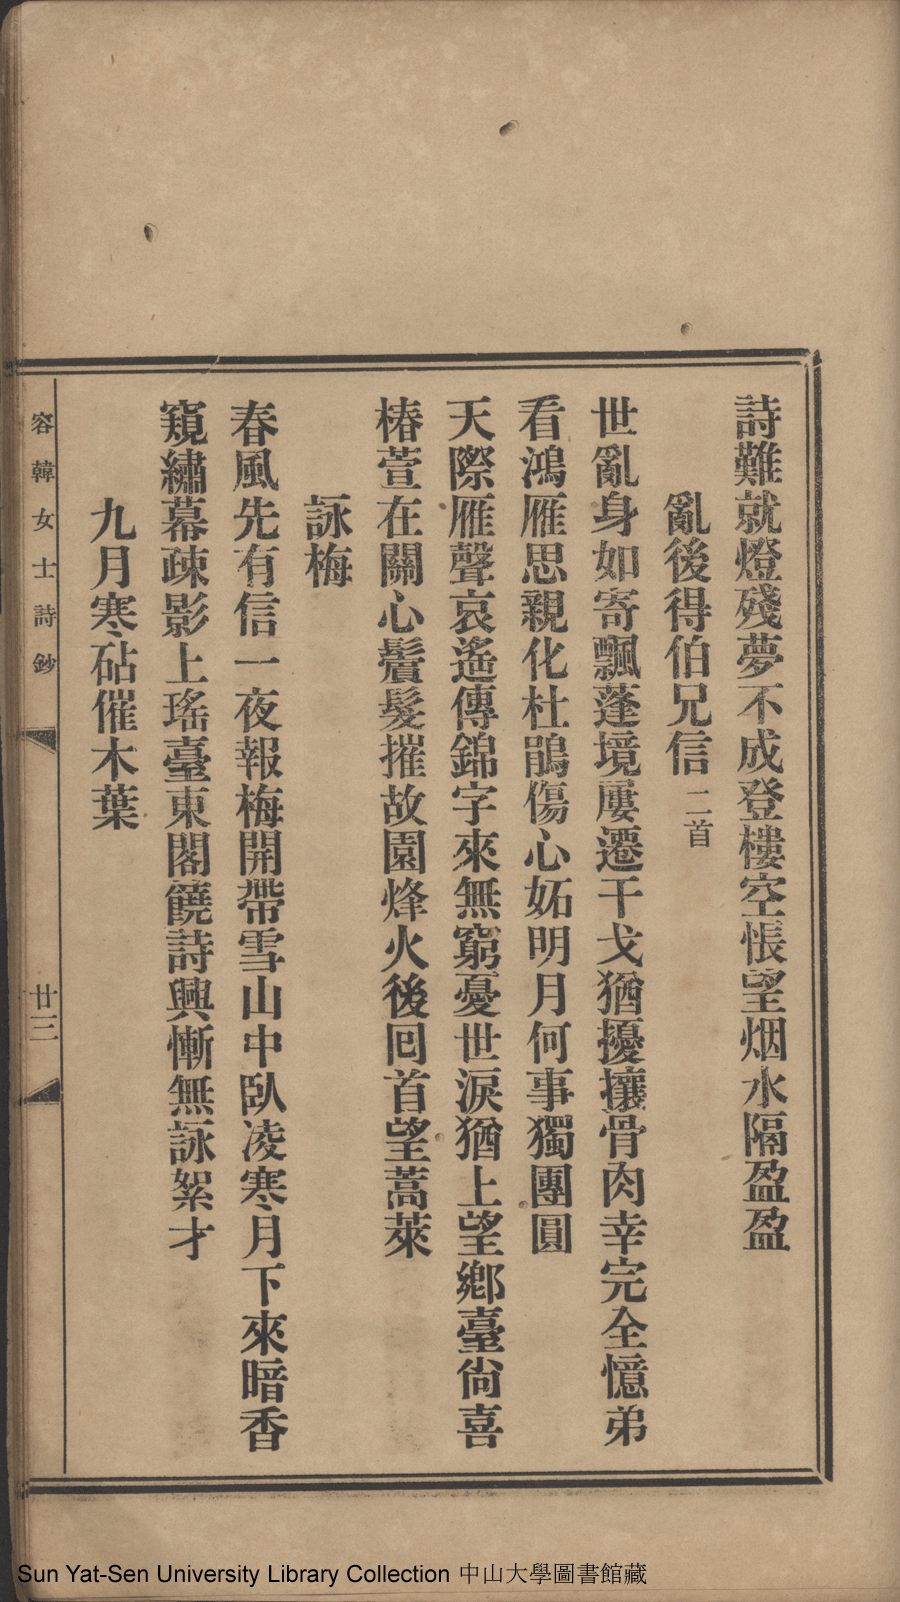 詩難就燈殘夢不成登樓空悵望烟水隔盈盈
亂後得伯兄信二首
世亂身如寄飄蓬境屢遷干戈猶擾攘骨肉幸完全憶弟
看鴻雁思親化杜鵑傷心妬明月何事獨團圓
天際雁聲哀遙傳錦字來無窮憂世淚猶上望鄉臺尙喜
椿萱在關心鬢髮摧故園烽火後囘首望蒿萊
詠梅
春風先有信一夜報梅開帶雪山中臥凌寒月下來暗香
窺繡幕疎影上瑤臺東閣饒詩興慚無詠絮才
九月寒砧催木葉
容韓女士詩鈔
廿三
Sun Yat-Sen University Library Collection 中山大學圖書館藏